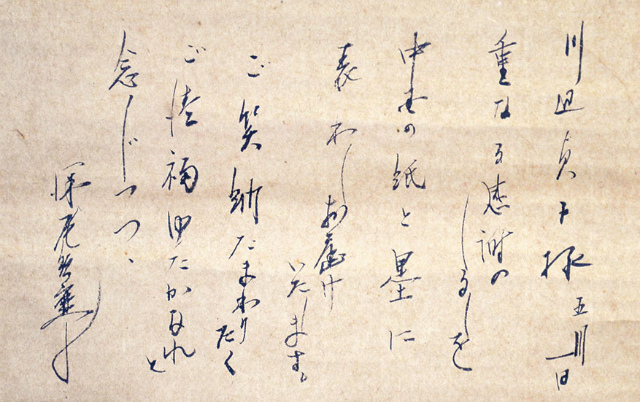 川辺貞子様 五月 日
重なる感謝の
しるしを
中国の紙と墨に
表わしお届け
いたします。
ご笑納たまわりたく
ご清福ゆたかなれと
念じつつ、
深尾